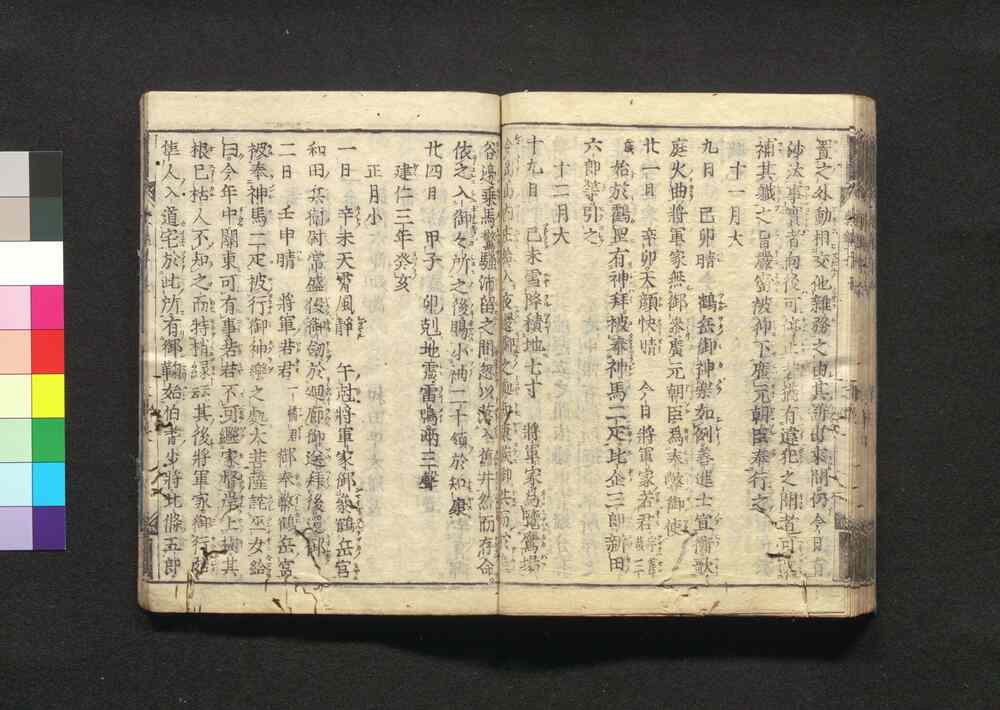 置之外動相交他雜務之由其訴出來間仍今日有
沙汰事實者向後可停止猶有違犯之聞者可改
補其職之旨嚴密被仰下廣元朝臣奉行之
十一月大
九日 己卯晴 鶴岳御神樂如例善進士宣衡歌
庭火曲將軍家無御參廣元朝臣爲奉幣御使
廿一日 辛卯天顏快晴 今日將軍家若君字善哉三歳
始於鶴岳有神拜被奉神馬二疋比企三郎新田
六郎等引之
十二月大
十九日 己未雪降積地七寸 將軍家爲覽鷹場
令出山内庄給入夜還御之處知康候御共而於龜
谷邊乘馬驚騷沛留之間忽以落入舊井然而存命
依之入御々所之後賜小袖二十領於知康
廿四日 甲子 卯剋地震雷鳴兩三聲
建仁三年癸亥
正月小
一日 辛未天霽風靜 午剋將軍家御參鶴岳宮
和田兵衞尉常盛役御劒於廻廊御遙拜後還御
二日 壬申晴 將軍若君一幡君御奉幣鶴岳宮
被奉神馬二疋被行御神樂之處大菩薩詫巫女給
曰今年中關東可有事若君不可繼家督岸上樹其
根已枯人不知之而特梢緑云云其後將軍家御行始
隼人入道宅於此所有御鞠始伯耆少將北條五郎